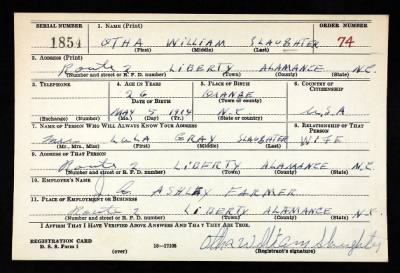 SERIAL NUMBER 1. NAME (Print) ORDER NUMBER
1854 OTHA WILLIAM SLAUGHTER 74
(First) (Middle) (Last)
2. ADDRESS (Print)
Route 2 LIBERTY ALAMANCE N.C.
(Number and street or R. F. D. number) (Town) (County) (State)
3. TELEPHONE 4. AGE IN YEARS 5. PLACE OF BIRTH 6. COUNTRY OF CITIZENSHIP
26 ORANGE
DATE OF BIRTH (Town or county)
MAY 5 1914 N.C U.S.A
(Exchange) (Number) (Mo.) (Day) (Yr.) (State or country)
7. NAME OF PERSON WHO WILL ALWAYS KNOW YOUR ADDRESS 8. RELATIONSHIP OF THAT PERSON
Mrs LULA GRAY SLAUGHTER WIFE
(Mr., Mrs., Miss) (First) (Middle) (Last)
9. ADDRESS OF THAT PERSON
Route 2 LIBERTY ALAMANCE N.C.
(Number and street or R. F. D. number) (Town) (County) (State)
10. EMPLOYER'S NAME
J. C. ASHLEY FARMER
11. PLACE OF EMPLOYMENT OR BUSINESS
Route 2 LIBERTY ALAMANCE N.C.
(Number and street or R. F. D. number) (Town) (County) (State)
I AFFIRM THAT I HAVE VERIFIED ABOVE ANSWERS AND THAT THEY ARE TRUE.
REGISTRATION CARD
D. S. S. Form 1 (over) 16—17105 Otha William Slaughter
(Registrant's signature)